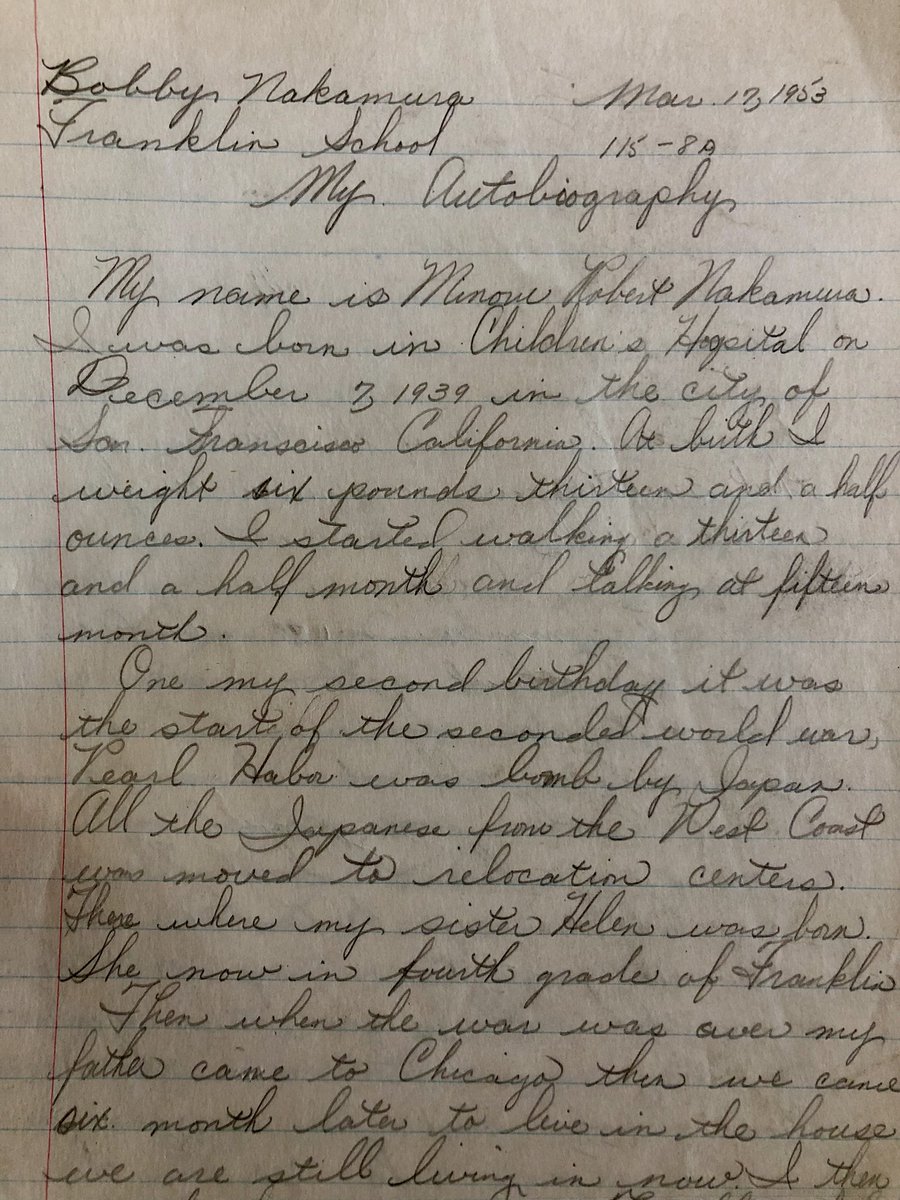 Bobby Nakamura Mar. 17, 1953
Franklin School 115-8A
My Autobiography
My name is Minoru Robert Nakamura.
I was born in Children's Hospital on
December 7, 1939 in the city of
San. Franscisco California. At birth I
weight six pounds thirteen and a half
ounces. I started walking a thirteen
and a half month and talking at fifteen
month.
One my second birthday it was
the start of the seconded world war,
Pearl Habor was bomb by Japan.
All the Japanese from the West Coast
was moved to relocation centers.
There where my sister Helen was born.
She now in fourth grade of Franklin
Then when the war was over my
father came to Chicago then we came
six month later to live in the house
we are still living in now. I then